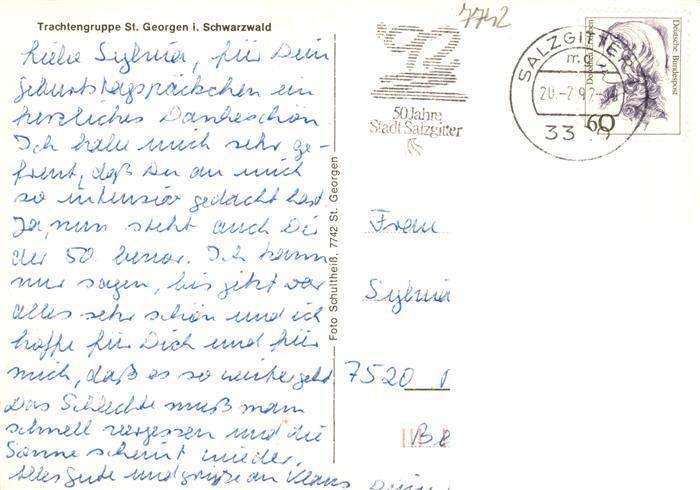 Trachtengruppe St. Georgen i. Schwarzwald
Liebe Sylvia, für Dein
Geburtstagspäckchen ein
herzliches Dankeschön
Ich habe mich sehr ge-
freut, daß Du an mich
so intensiv gedacht hast
Ja, nun steht auch Dir
der 50. bevor. Ich kann
nur sagen, bis jetzt war
alles sehr schön und ich
hoffe für Dich und für
mich, daß es so weitergeht
Das Schlechte muß man
schnell vergessen und die
Sonne scheint wieder.
Alles Gute und grüße an Klaus
Foto Schultheiß, 7742 St. Georgen
7742
'92
50 Jahre
Stadt Salzgitter
SALZGITTER
mg
20.-2.92
33
Deutsche Bundespost
60
Frau
Sylvia
7520